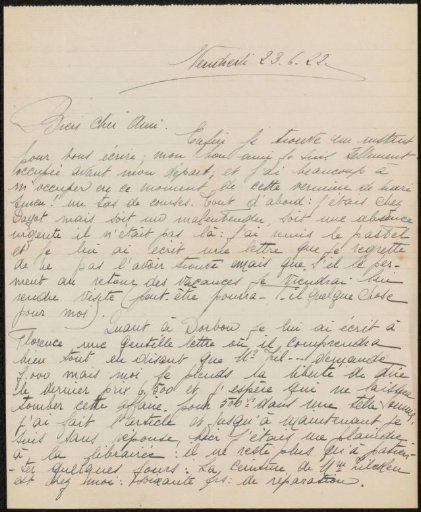 Vendredi 23.6.22.
Bien cher Ami.
Enfin je trouve un instant
pour vous écrire; mon bon ami je suis tellement
occupée avant mon départ, et j'ai beaucoup à
m'occuper en ce moment de cette vermine de
un tas de courses. Tout d'abord: j'étais chez
mais soit un malentendu, soit une absence
urgente il n'était pas là: j'ai remis le paquet
et je lui ai écrit une lettre que je regrette
de ne pas l'avoir trouvé mais que s'il le per-
ment au retour des vacances je viendrai lui
rendre visite (peut-être pourra-t-il quelque chose
pour moi).
Quant à Dorbon je lui ai écrit à
Florence une gentille lettre où il comprendra
bien tout en disant que Mr demande
7.000 mais moi je prends la liberté de dire
le dernier prix 6.500 et j'espère qu'il ne laissera
tomber cette affaire. pour 500 dans une telle somme,
j'ai fait l'article et jusqu'à maintenant je
suis sans réponse, hier j'étais
à la librairie: il ne reste plus qu'à patien-
ter quelques jours. La ceinture de Mme
est chez moi: soixante frs: de réparation.